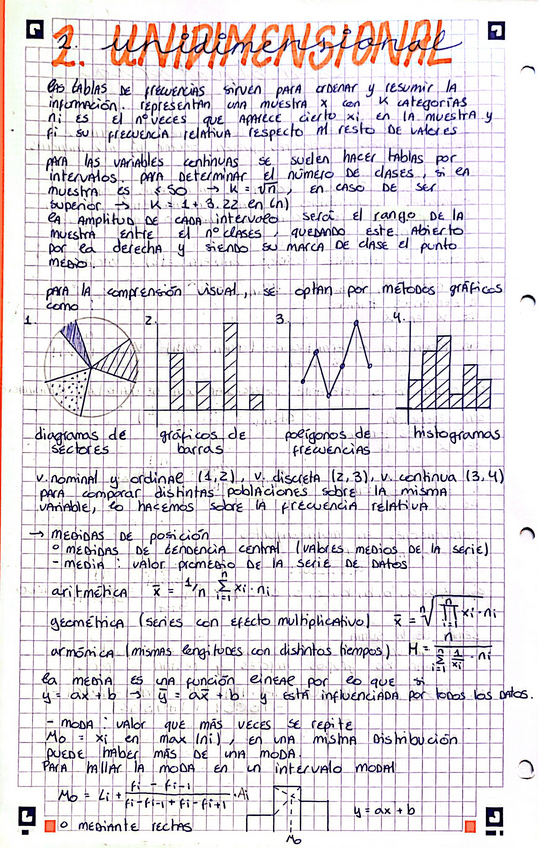 2. UNIDIMENSIONAL
unidimensional
las tablas de frecuencias sirven para ordenar y resumir la
información. representan una muestra x con K categorías
ni es el nº veces que aparece cierto xi en la muestra y
fi su frecuencia relativa respecto al resto de valores
para las variables continuas se suelen hacer tablas por
intervalos. para determinar el número de clases, si la
muestra es ≤50 → K = √n, en caso de ser
superior → K = 1 + 3.22 en (n)
la amplitud de cada intervalo será el rango de la
muestra entre el nº clases, quedando este abierto
por la derecha y siendo su marca de clase el punto
medio.
para la comprensión visual, se optan por métodos gráficos
como:
1. 2. 3. 4.
diagramas de sectores
gráficos de barras
polígonos de frecuencias
histogramas
v. nominal y ordinal (1,2), v. discreta (2,3), v. continua (3,4)
para comparar distintas poblaciones sobre la misma
variable, lo hacemos sobre la frecuencia relativa
→ medidas de posición
o medidas de tendencia central (valores medios de la serie)
- media: valor promedio de la serie de datos
aritmética x̄ = 1/n Σ i=1 n xi · ni
geométrica (series con efecto multiplicativo) x̄ = n√ ∏ i=1 n xi · ni
armónica (mismas longitudes con distintos tiempos) H = n / Σ i=1 n 1/xi · ni
la media es una función lineal por lo que si
y = ax + b → ȳ = ax̄ + b y está influenciada por todos los datos.
- moda: valor que más veces se repite
Mo = xi en max (ni), en una misma distribución
puede haber más de una moda.
Para hallar la moda en un intervalo modal
Mo = Li + fi - fi-1 / fi - fi-1 + fi - fi+1 · Ai
y = ax + b
o mediante rectas
Mo